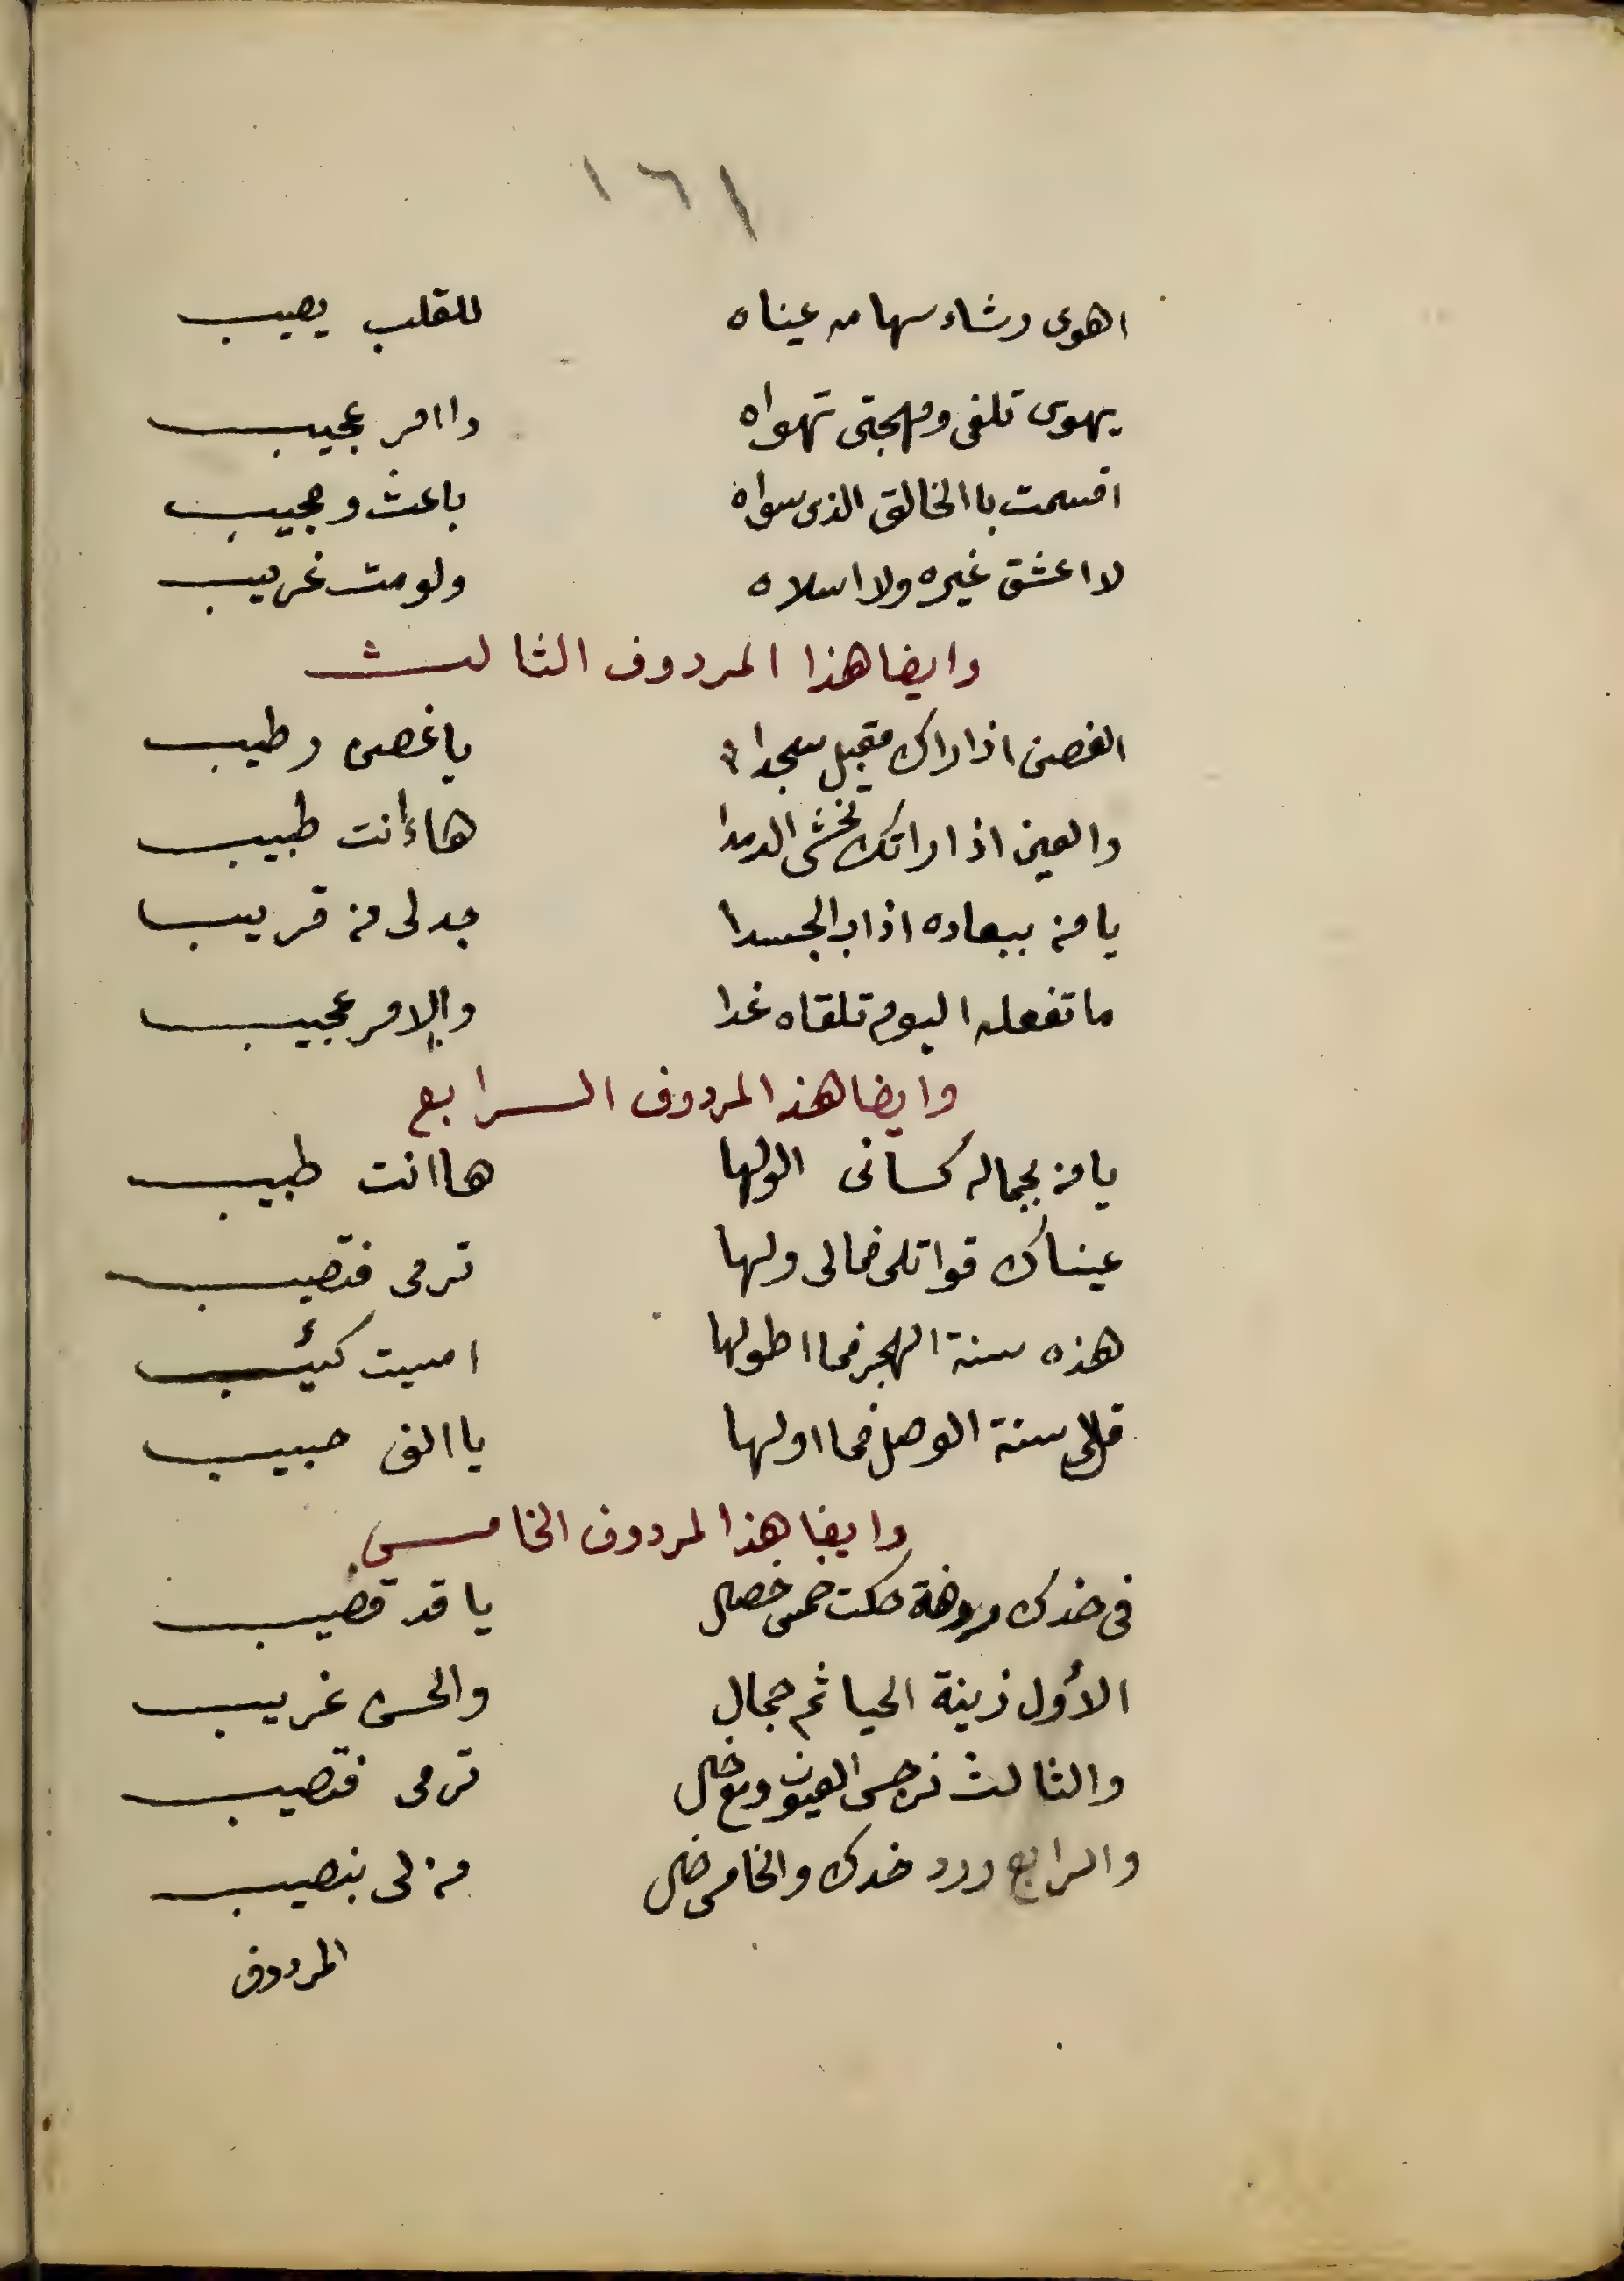 ١٦١
اهوى رشاء سهامه عيناه للقلب يصيب
يهوى تلفى ومهجتى تهواه داامر عجيب
اقسمت باالخالق الذى سواه باعث ومجيب
لااعشق غيره ولا اسلاه ولو مت غريب
وايضا هذا المردوف الثالث
الغصن اذا راك مقبل سجدا ياغصن رطيب
والعين اذا راتك تخشى الرمدا هاءانت طبيب
يامن ببعاده اذاب الجسدا جدلى من قريب
ماتفعله اليوم تلقاه غدا والامر عجيب
وايضا هذا المردوف الرابع
يامن بجماله كسانى الولها هاانت طبيب
عيناك قواتلى فمالى ولها ترمى فتصيب
هذه سنة الهجر فمااطولها امسيت كئيب
قللى سنة الوصل فمااولها ياالف حبيب
وايضا هذا لمردوف الخامس
فى خدك روضة حكت خمس خصال ياقد قضيب
الأول زينة الحيا ثم جمال والحسن غريب
والثالث نرجس العيون ترمى فتصيب
والرابع ورد خدك والخامس خال من لى بنصيب
المردوف